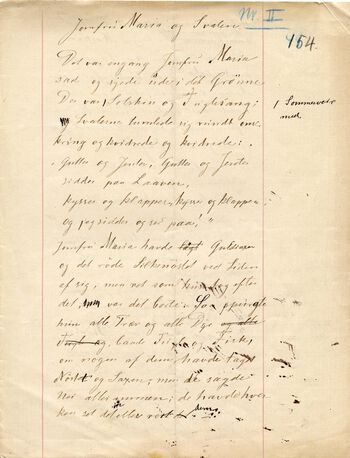 Nr. II
Jomfru Maria og Svalen
154.
Det var engang Jomfru Maria
sad og syede ude i det Grønne
Der var Solskin og Fuglesang;
og Svalerne tumlede sig rundt om-
kring og kvidrede og kvidrede:
"Gutter og Jenter, Gutter og Jenter
sidder paa Laaven,
kysser og klapper, kysser og klapper
og jeg sidder og ser paa!"
Jomfru Maria havde Guldsaxen
og det røde Silkenøste ved Siden
af sig, men ret som efter
det, var det borte. Saa spurgte
hun alle Trær og alle Dyr og alle
og, baade Fugle og Fisk,
om nogen af dem havde taget
Nøstet og Saxen; men de sagde
Nei allesammen; de havde hver-
ken set det eller rørt dem.
/ Sommerveir
med